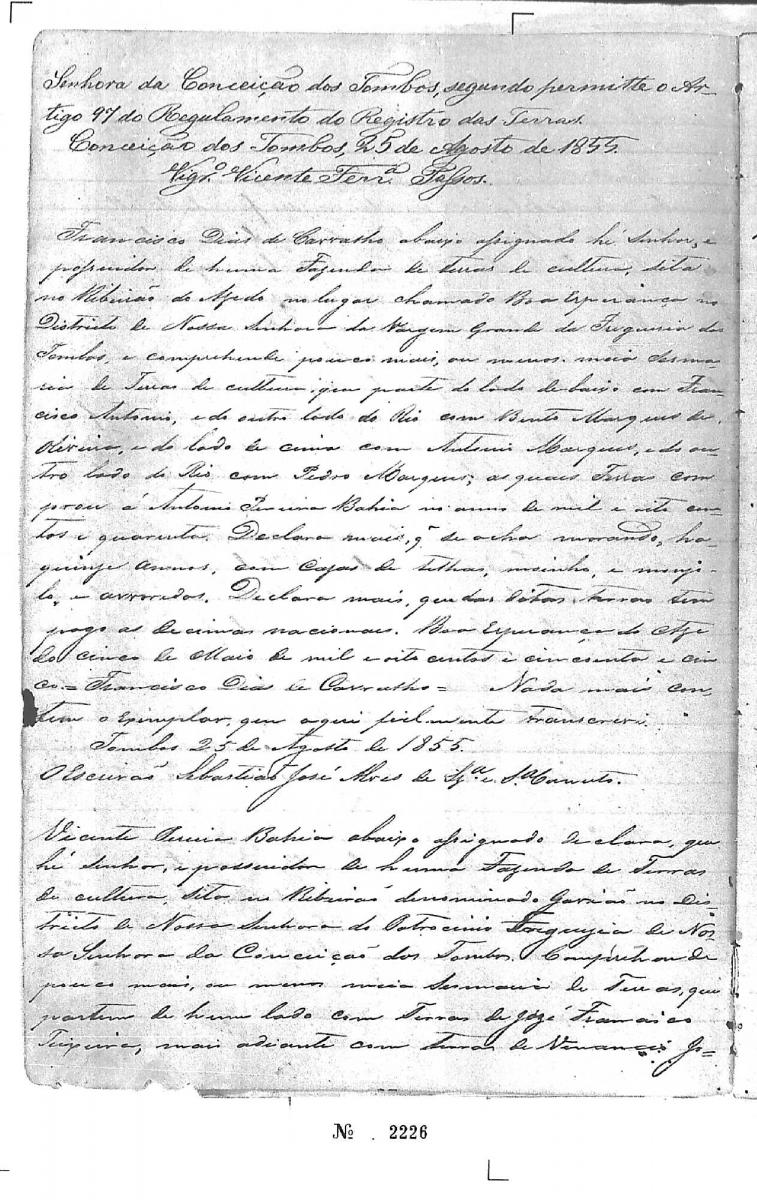 Senhora da Conceição dos Tombos, segundo permitte o Ar-
tigo 97 do Regulamento do Registro das Terras.
Conceição dos Tombos, 25 de Agosto de 1855.
Vigrº. Vicente Ferrª. Passos.
Francisco Dias de Carvalho abaixo assignado hé Senhor, e
possuidor de huma Fazenda de terras de cultura, sita
no Ribeirão do Azedo no lugar chamado Boa Esperança no
Districto de Nossa Senhora da Vargem Grande da Freguesia dos
Tombos, e comprehende pouco mais, ou menos meia Sesma
ria de Terras de cultura que parte do lado de baixo com Fran
cisco Antonio, e do outro lado do Rio com Bento Marques de
Oliveira, e do lado de cima com Antonio Marques, e do ou
tro lado do Rio com Pedro Marques; as quaes Terras com
prou á Antonio Pereira Bahia no anno de mil e oito cen
tos e quarenta. Declara mais, q' se acha morando, ha
quinze annos, com Cazas de telhas, moinho, e monjo
lo, e arvoredos. Declara mais, que das ditas terras tem
pago as decimas nacionais. Boa Esperança do Aze
do cinco de Maio de mil e oito centos e cincoenta e cin
co = Francisco Dias de Carvalho = Nada mais con
tem o Exemplar, que aqui fielmente transcrevi.
Tombos 25 de Agosto de 1855.
O Escrivão Sebastião José Alves de Szª. e Sª. Canuto.
Vicente Pereira Bahia abaixo assignado declara, que
hé Senhor, e possuidor de huma Fazenda de Terras
de cultura, sitas no Ribeirão denominado Gavião no dis-
tricto de Nossa Senhora do Patrocinio Freguezia de Nos-
sa Senhora da Conceição dos Tombos. Comprehende
pouco mais, ou menos meia Sesmaria de Terras, que
partem de hum lado com Terras de José Francisco
Teixeira, mais adiante com terras de Venancio Jo-
Nº 2226